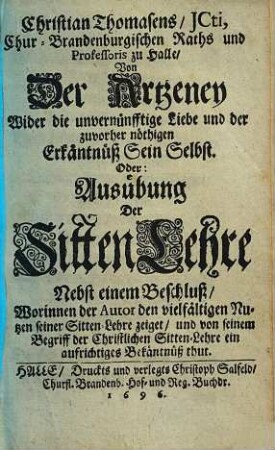 Christian Thomasens / JCti,
Chur-Brandenburgischen Raths und
Professoris zu Halle /
Von
Der Artzeney
Wider die unvernünfftige Liebe und der
zuvorher nöthigen
Erkäntnüß Sein Selbst.
Oder:
Ausübung
Der
Sitten Lehre
Nebst einem Beschluß /
Worinnen der Autor den vielfältigen Nu-
tzen seiner Sitten-Lehre zeiget / und von seinem
Begriff der Christlichen Sitten-Lehre ein
aufrichtiges Bekäntnüß thut.
HALLE / Druckts und verlegts Christoph Salfeld /
Churfl. Brandenb. Hof- und Reg. Buchdr.
1696.